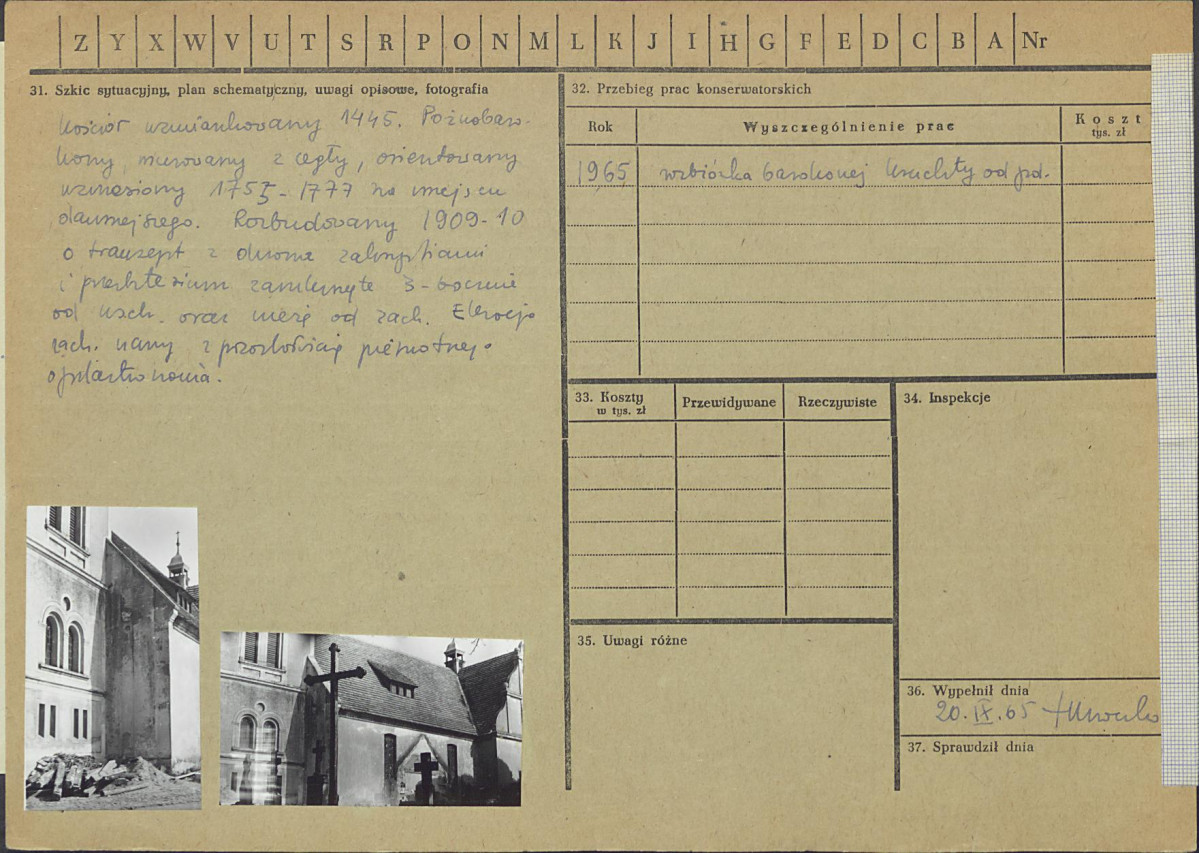 Z Y X W V U T S R P O N M L K J I H G F E D C B A Nr
31. Szkic sytuacyjny, plan schematyczny, uwagi opisowe, fotografia
Kościół wzmiankowany 1445. Późnobaro-
kowy, murowany z cegły, orientowany
wzniesiony 1755-1777 na miejscu
dawniejszego. Rozbudowany 1909-10
o transept z dwoma zakrystiami
i prezbiterium zamknięte 3-bocznie
od wsch. oraz wieżę od zach. Elewacje
z pozostałością pierwotnego
opilastrowania.
32. Przebieg prac konserwatorskich
Rok
Wyszczególnienie prac
Koszt
tys. zł
1965 rozbiórka barokowej kruchty od pd.
33. Koszty
w tys. zł
Przewidywane
Rzeczywiste
34. Inspekcje
35. Uwagi różne
36. Wypełnił dnia
20.IX.65
37. Sprawdził dnia